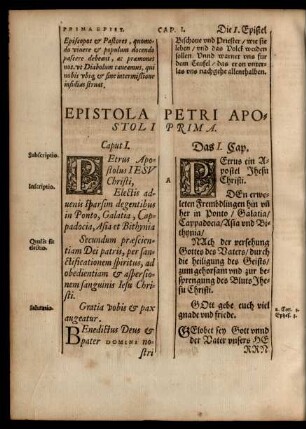 PRIMA EPIST. CAP. I. Die I. Epistel
Episcopos & Pastores, quomodo
vivere & populum docendo
pascere debeant, ac præmonet
nos, vt Diabolum caveamus, qui
nobis vbiq; & sine intermissione
insidias struat.
Bischoue vnd Priester / wie sie
leben / vnd das Volck weiden
sollen. Vnnd warnet vns für
dem Teufel / das er an vnterlas
vns nachgehe allenthalben.
EPISTOLA PETRI APO-
STOLI PRIMA.
Subscriptio.
Inscriptio.
Qualis sit
electio.
Salutatio.
Caput I.
PEtrus Apo-
stolus IESV
Christi,
Electis ad-
uenis sparsim degentibus
in Ponto, Galatia, Cap-
padocia, Asia et Bithynia
Secundum præscien-
tiam Dei patris, per san-
ctificationem spiritus, ad
obedientiam & aspersio-
nem sanguinis Iesu Chri-
sti.
Gratia vobis & pax
augeatur.
BEnedictus Deus &
pater DOMINI no-
stri
A
Das I. Cap.
PEtrus ein A-
postel Jhesu
Christi.
DEn erwe-
leten Frembdlingen hin vñ
her in Ponto / Galatia /
Cappadocia / Asia vnd Bi-
thynia /
NAch der versehung
Gottes des Vaters / durch
die heiligung des Geists /
zum gehorsam vnd zur be-
sprengung des Bluts Jhe-
su Christi.
GOtt gebe euch viel
gnade vnd friede.
GElobet sey Gott vnnd
der Vater vnsers HE
RRN
2. Cor. 1.
Ephes. 1.